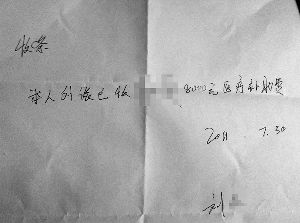 收条
本人刘强已收 8000元医疗补助费
2011 7.30
刘